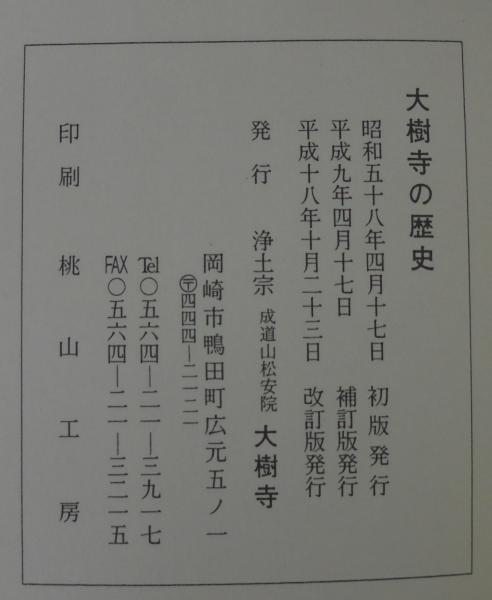 大樹寺の歴史
昭和五十八年四月十七日 初版発行
平成九年四月十七日 補訂版発行
平成十八年十月二十三日 改訂版発行
発行 浄土宗 成道山松安院 大樹寺
岡崎市鴨田町広元五ノ一
〒四四四―二一二一
℡〇五六四―二一―三九一七
FAX〇五六四―二一―三二一五
印刷 桃山工房